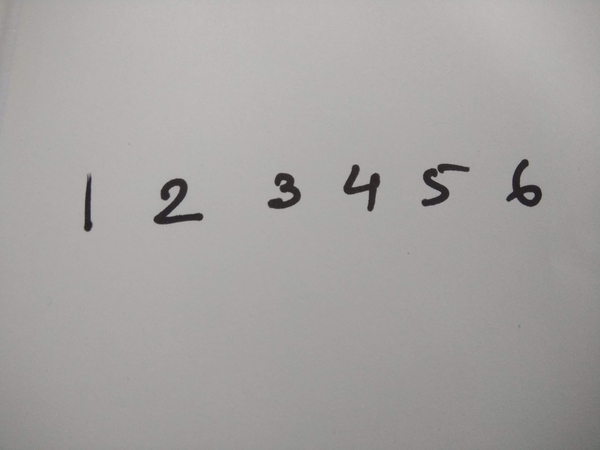 1 2 3 4 5 6